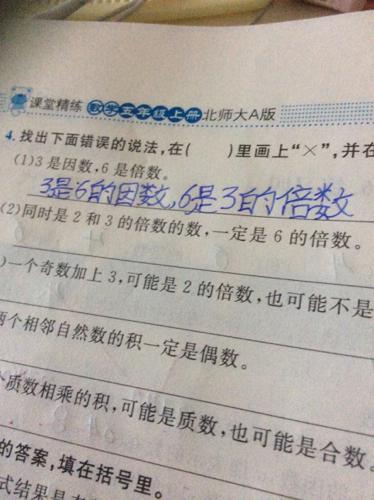 课堂精练 数学五年级上册 北师大A版
4.找出下面错误的说法,在( )里画上“×”,并在
(1)3是因数,6是倍数。
3是6的因数,6是3的倍数
(2)同时是2和3的倍数的数,一定是6的倍数。
)一个奇数加上3,可能是2的倍数,也可能不是
两个相邻自然数的积一定是偶数。
质数相乘的积,可能是质数,也可能是合数。
的答案,填在括号里。
式结果是